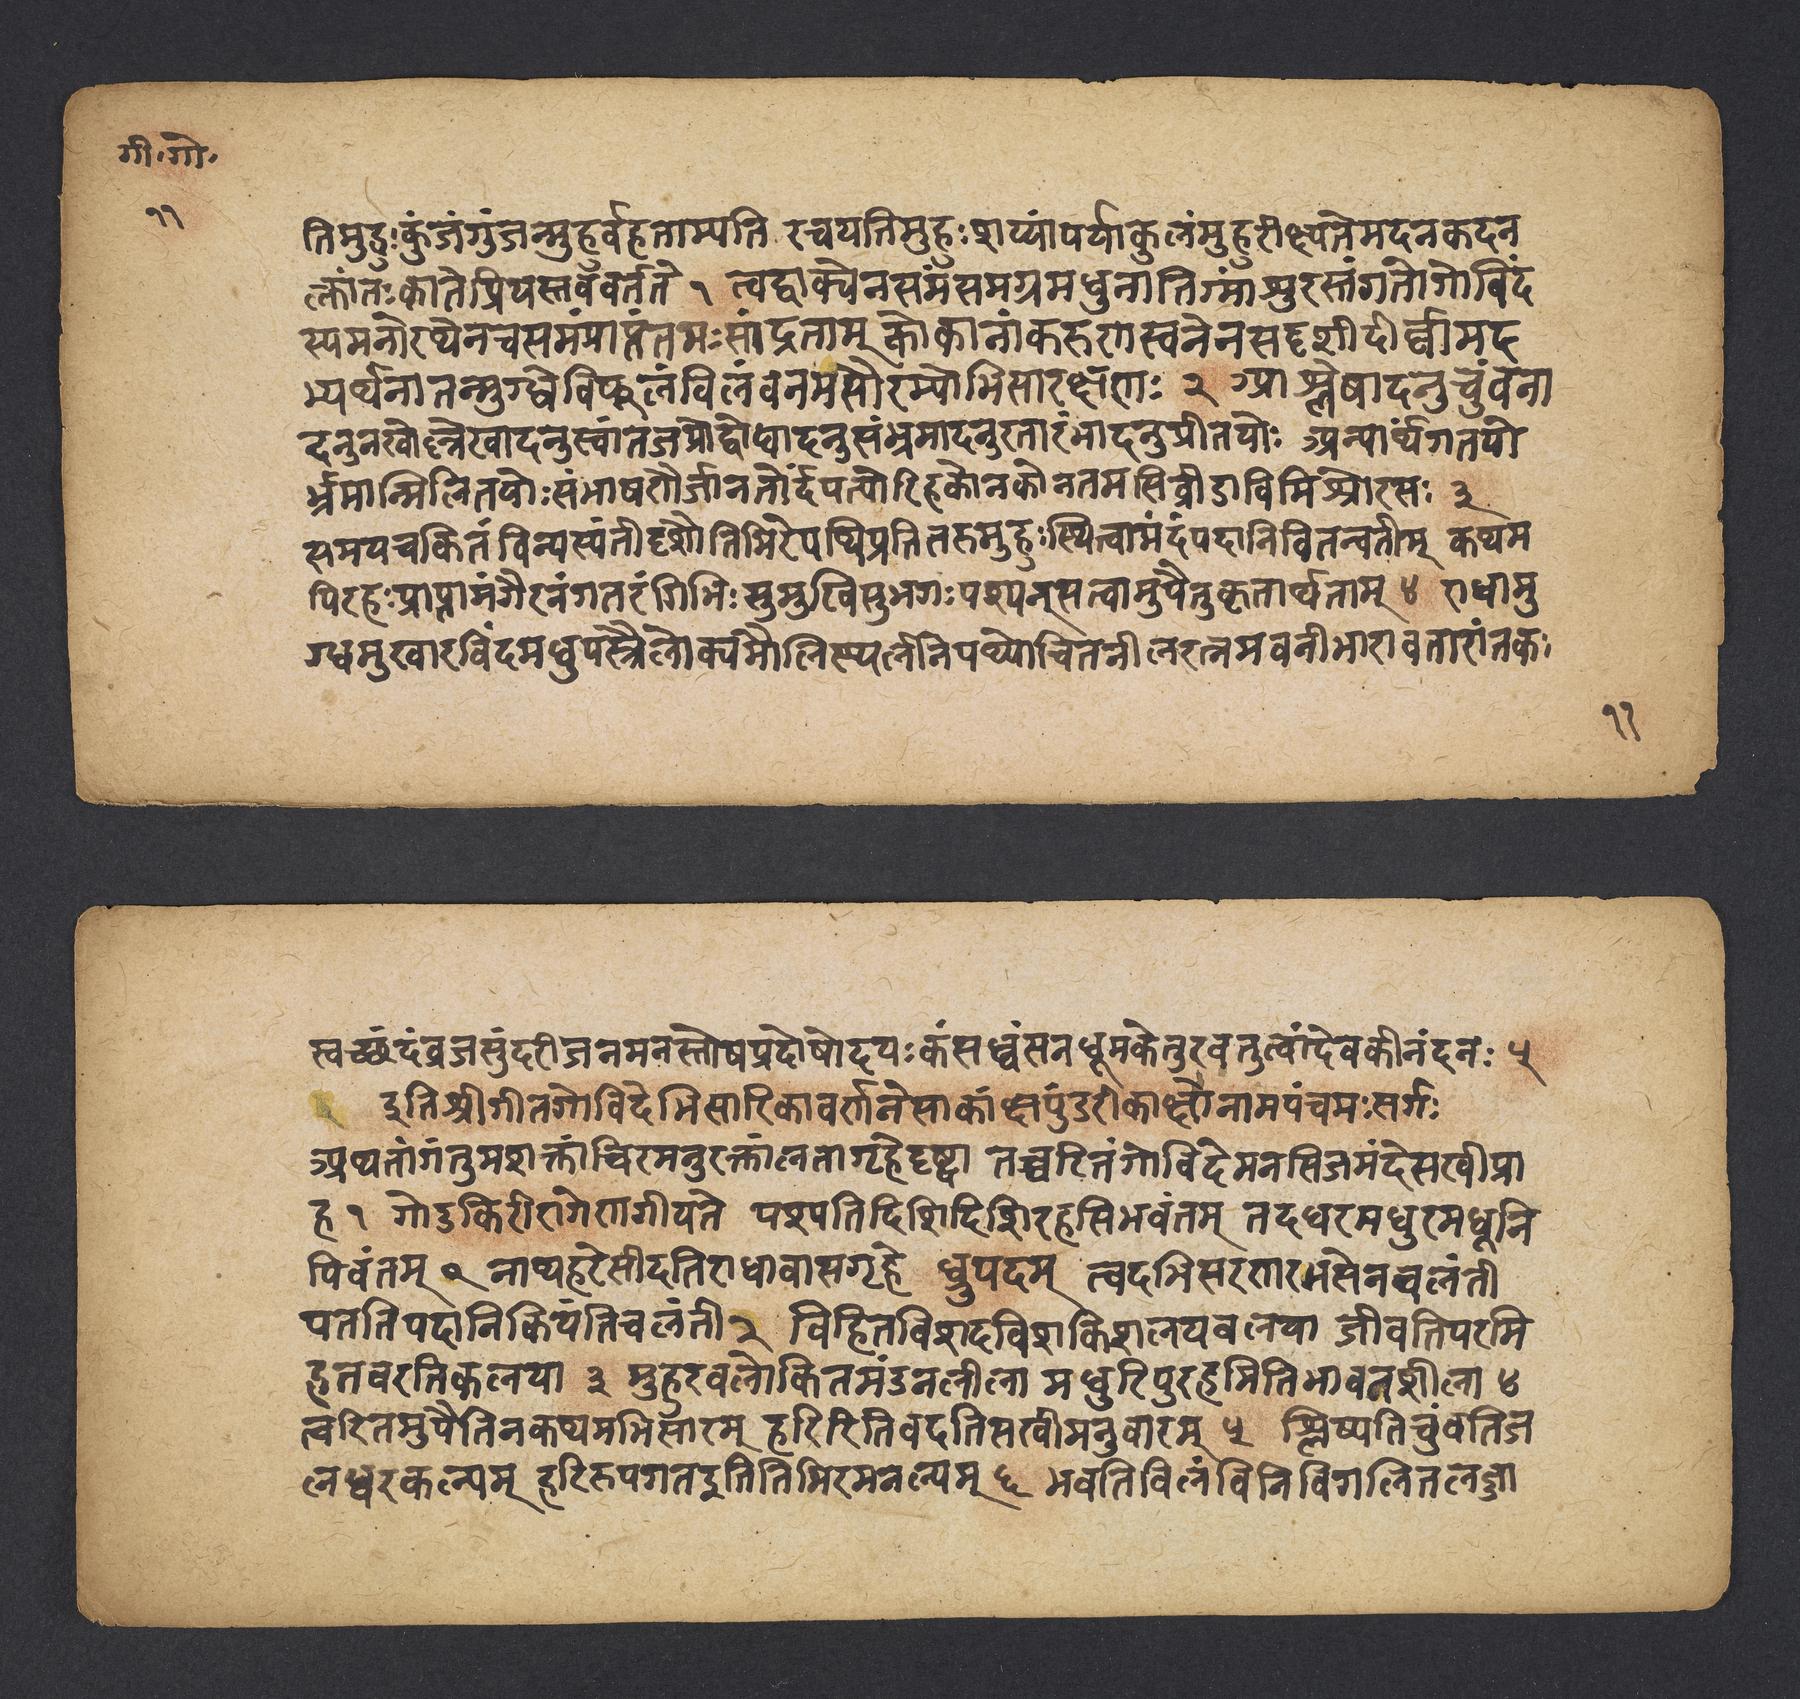 गी॰गो॰
११
तिमुहुः कुंजंगुंजन्मुहुर्वहुताम्यति रचयतिमुहुःशय्यांपर्याकुलंमुहुरीक्ष्यतेमदनकदन
क्लांतःकांतेप्रियस्तववर्त्तते १ त्वद्वाक्येनसमंसमग्रमधुनातिग्मांशुरस्तंगतोगोविंद
स्यमनोरथेनचसमंप्राप्तंतमःसांद्रताम् कोकानांकरुणस्वनेनसदृशीदीर्घामद
भ्यर्थनातन्मुग्धेविफलंविलंवनमसौरम्योभिसारक्षणः २ आश्लेषादनुचुंवना
दनुनखोल्लेखादनुस्वांतजप्रोद्बोधादनुसंभ्रमादनुरतारंभादनुप्रीतयोः अन्यार्थंगतयो
र्भ्रमान्मिलितयोःसंभाषणैर्जानतोर्दंपत्योरिहकोनकोनतमसिव्रीडाविमिश्रोरसः ३
सभयचकितंविन्यस्यंतीदृशौतिमिरेपथिप्रतितरुमुहुःस्थित्वामंदंपदानिवितन्वतीम् कथम
पिरहःप्राप्तामंगैरनंगतरंगिभिःसुमुखिसुभगःपश्यन्सत्वामुपैतुकृतार्थताम् ४ राधामु
ग्धमुखारविंदमधुपस्त्रैलोक्यमौलिस्थलीनेपथ्योचितनीलरत्नमवनीभारावतारांतकः
११
स्वच्छंदंव्रजसुंदरीजनमनस्तोषप्रदोषोदयःकंसध्वंसनधूमकेतुरवतुत्वांदेवकीनंदनः ५
इतिश्रीगीतगोविंदेभिसारिकावर्णनेसाकांक्षपुंडरीकाक्षोनामपंचमःसर्गः
अथतांगंतुमशक्तांचिरमनुरक्तांलतागृहेदृष्ट्वा तच्चरितंगोविंदेमनसिजमंदेसखीप्रा
ह १ गोडकिरीरागेणगीयते पश्यतिदिशिदिशिरहसिभवंतम् तदधरमधुरमधूनि
पिवंतम् १ नाथहरेसीदतिराधावासगृहे ध्रुपदम् त्वदभिसरणरभसेनवलंती
पततिपदानिकियंतिचलंती २ विहितविशदविशकिशलयवलया जीवतिपरमि
हतवरतिकलया ३ मुहुरवलोकितमंडनलीला मधुरिपुरहमितिभावनशीला ४
त्वरितमुपैतिनकथमभिसारम् हरिरितिवदतिसखीमनुवारम् ५ श्लिष्यतिचुंवतिज
लधरकल्पम् हरिरुपगतइतितिमिरमनल्पम् ६ भवतिविलंविनिविगलितलज्जा